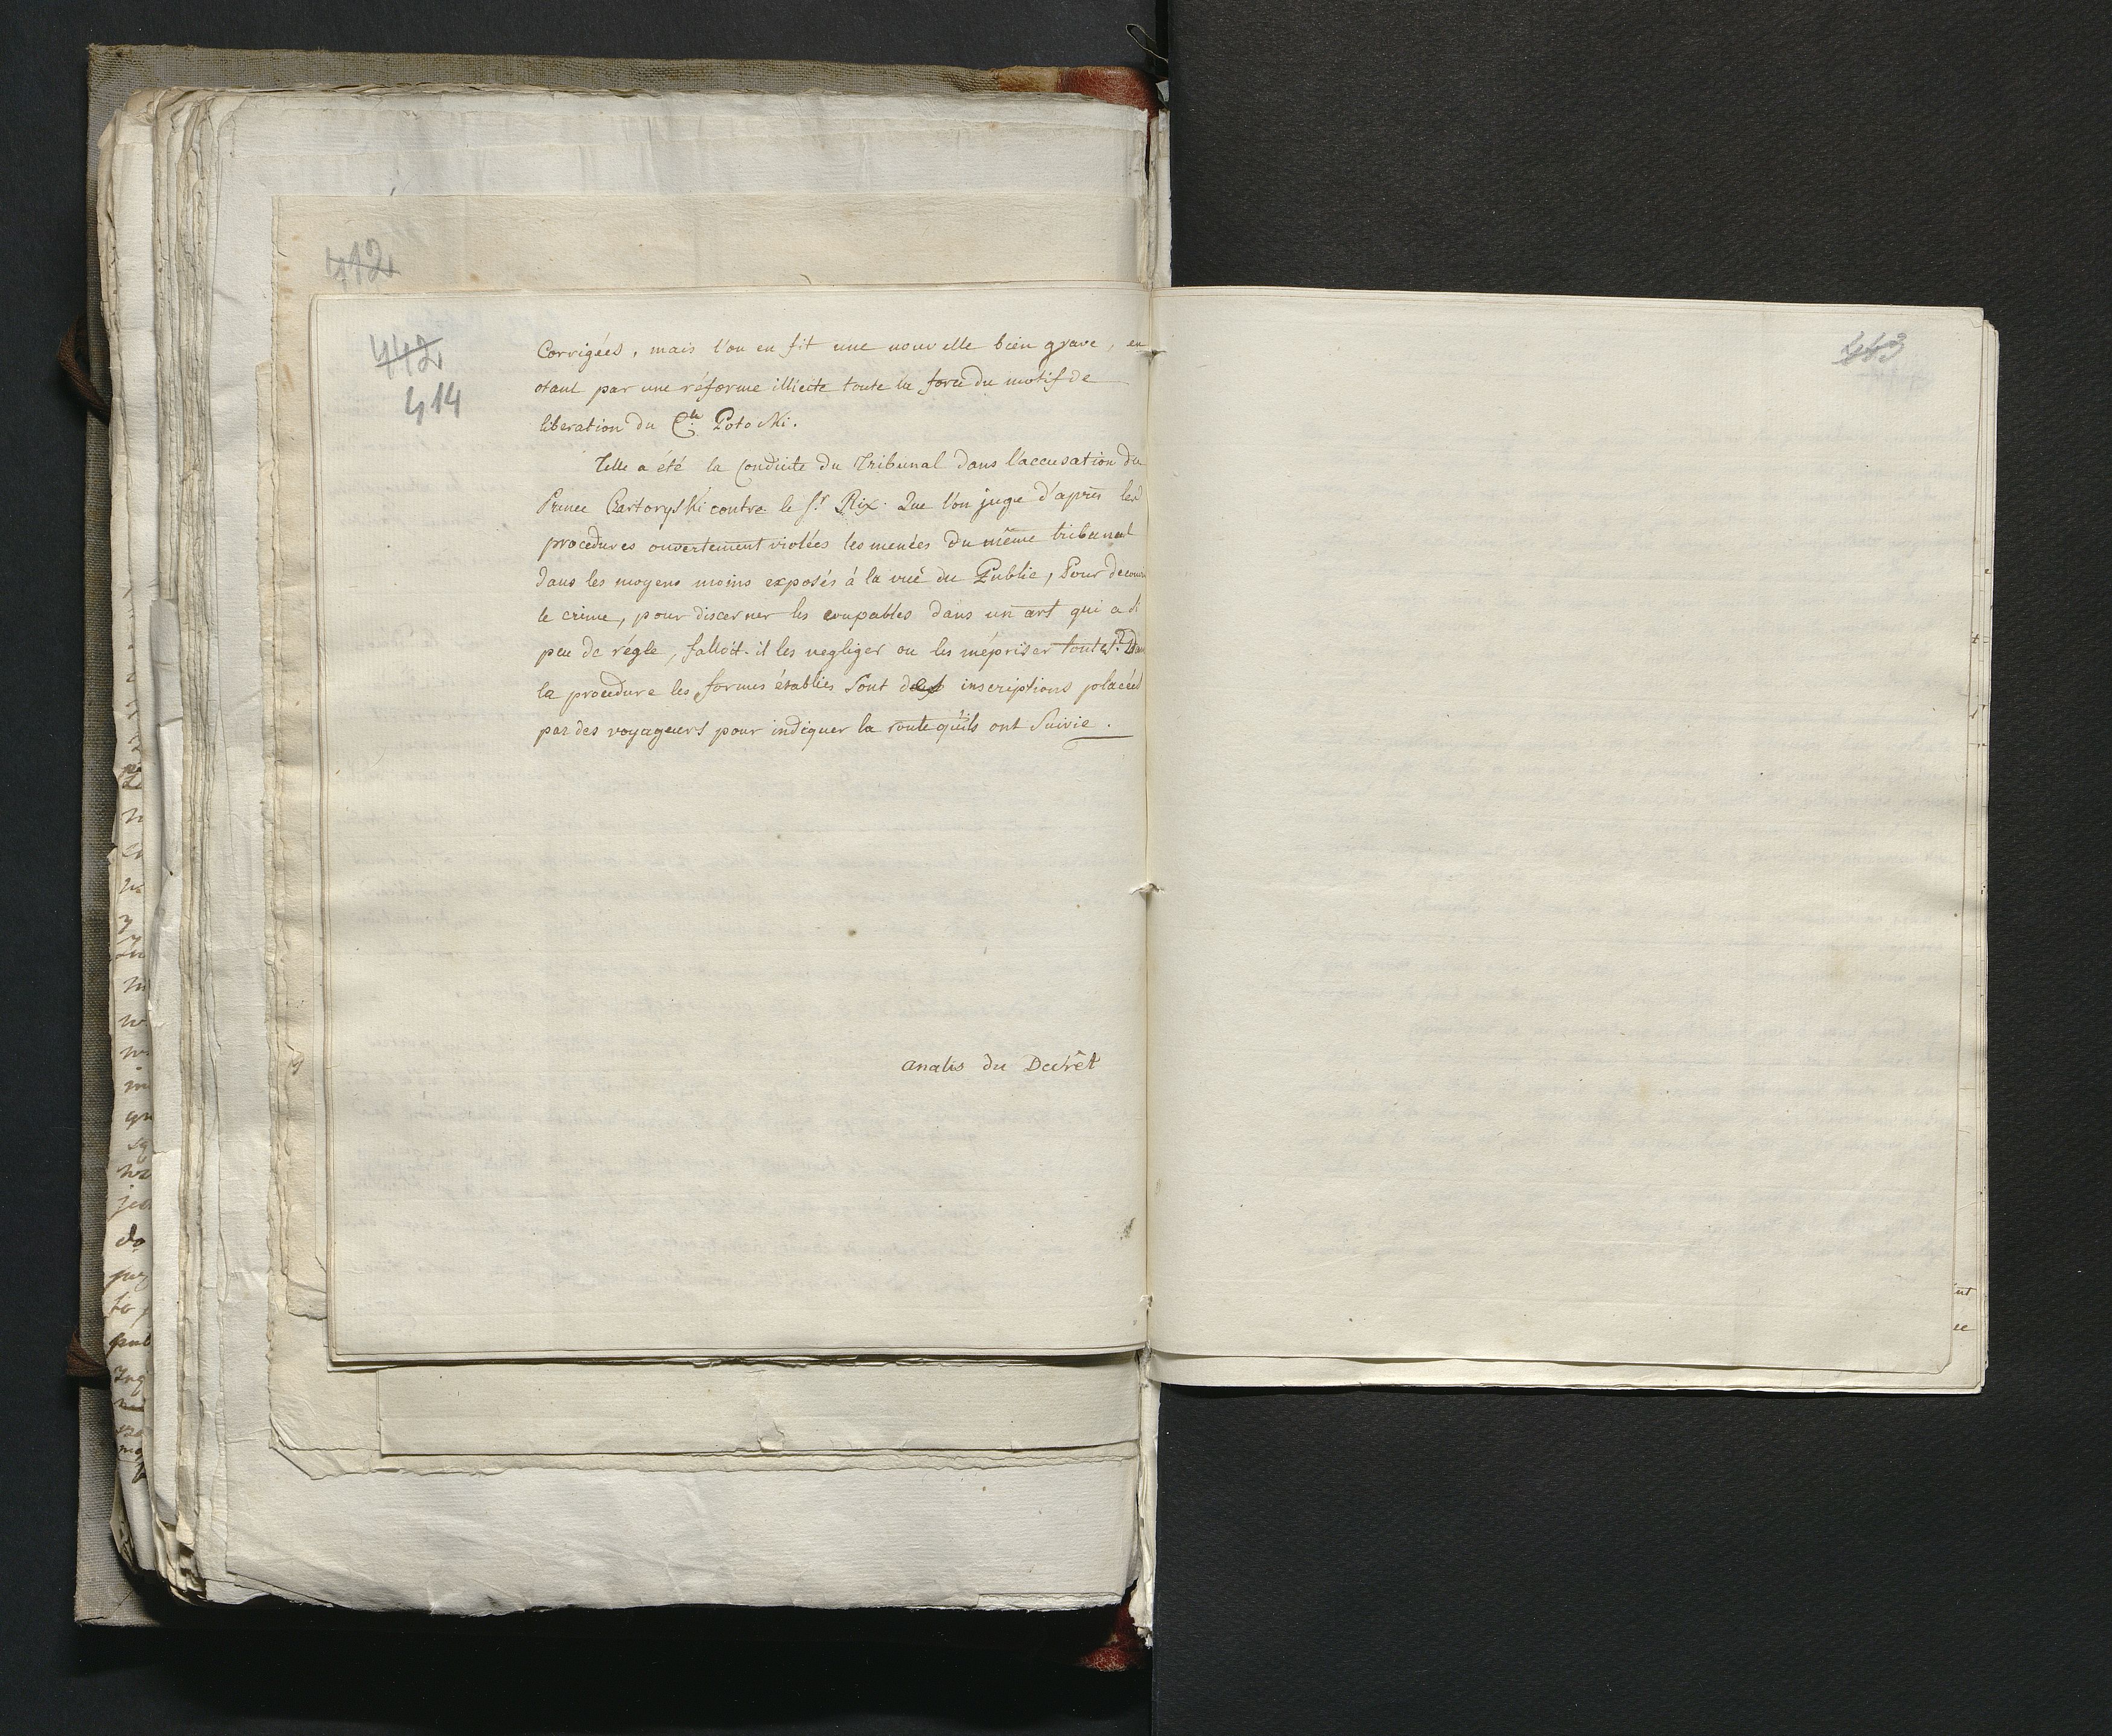 412
442
414
Corrigées, mais l'on en fit une nouvelle bien grave, en
otant par une réforme illicite toute la force du motif de
liberation du C.te Potocki.
Telle a été la Conduite du Tribunal dans l'accusation du
Prince Czartoryski contre le Sr. Rix. Que l'on juge d'après les
procedures ouvertement violées les menées du même tribunal
dans les moyens moins exposés à la vuë du Public, Pour decouvrir
le crime, pour discerner les coupables dans un art qui a si
peu de régle, falloit-il les negliger ou les mépriser toutes? Dans
la procedure les formes établies sont des inscriptions placées
par des voyageurs pour indiquer la route qu'ils ont suivie.
analis du Decrêt
443